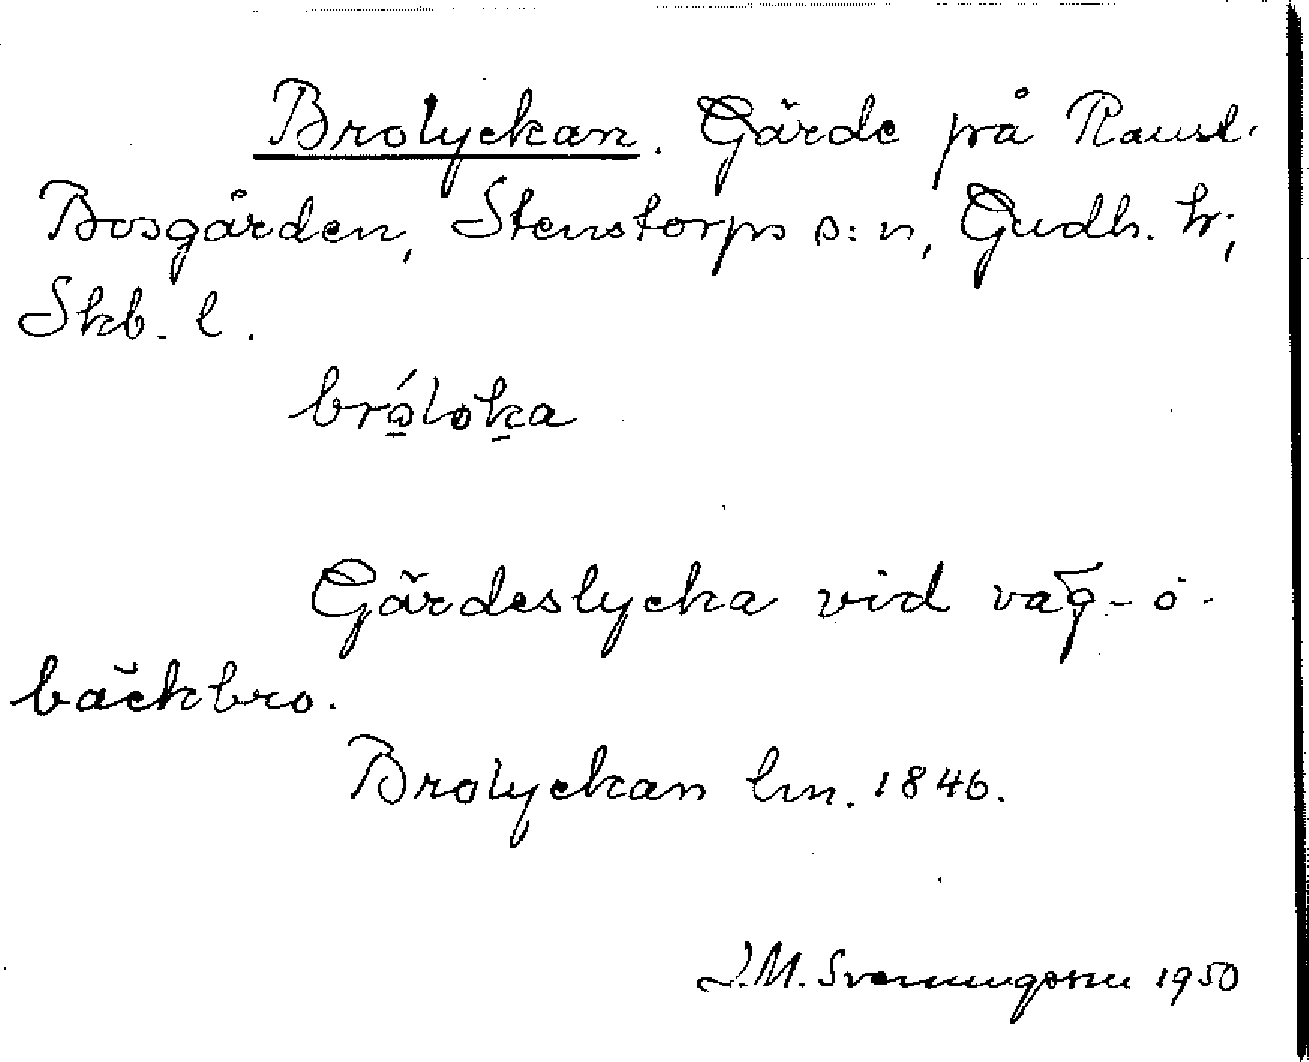 Brolyckan. Gärde på Raust-
Bosgården, Stenstorps s:n, Gudh. hr;
Skb. l.
bróloka
Gärdeslycka vid väg- o.
bäckbro.
Brolyckan lm. 1846.
J.M. Svenningsson 1950